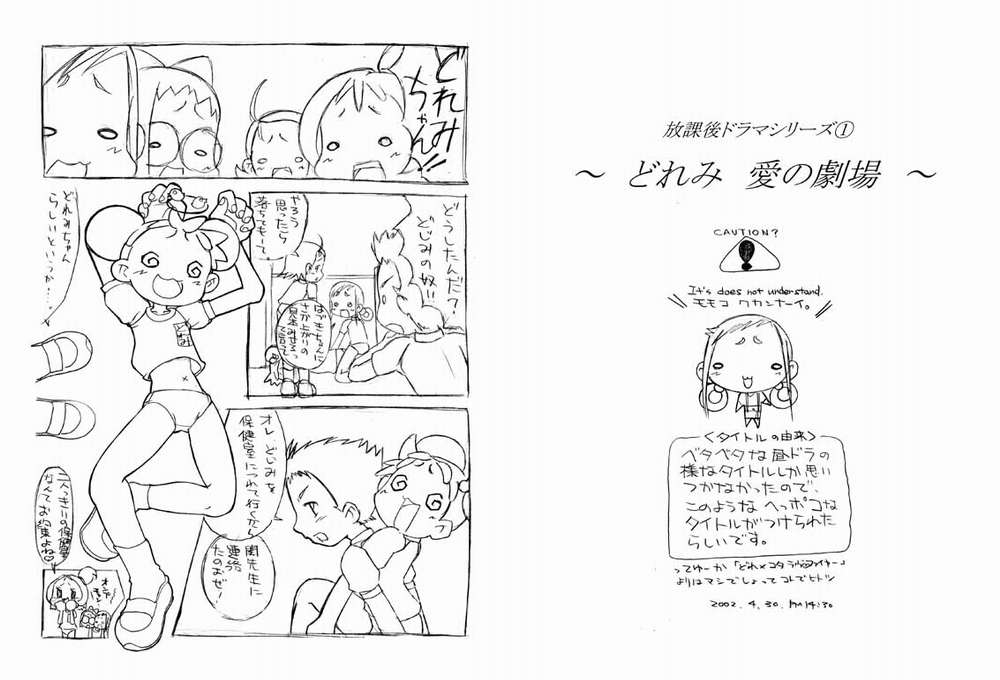 どれみ
ちゃん!!
どうしたんだ?
どじみの奴!!
やろう
思ったら
落ちてもーて
はづきちゃんに
さか上がりの
見本みせるって
言って
どれみちゃん
らしいというか…
オレ、どじみを
保健室につれて行くから
関先生に
連絡
たのむぜ!
二人っきりの保健室
なんてお約束よね♡
放課後ドラマシリーズ①
~ どれみ 愛の劇場 ~
CAUTION?
It's does not understand.
モモコ ワカンナーイ。
<タイトルの由来>
ベタベタな昼ドラの
様なタイトルしか思い
つかなかったので、
このような へっポコな
タイトルがつけられた
らしいです。
ってゆーか「どれ×コタ
よりはマシでしょってコトでヒトツ
2002. 4. 30. 14:30